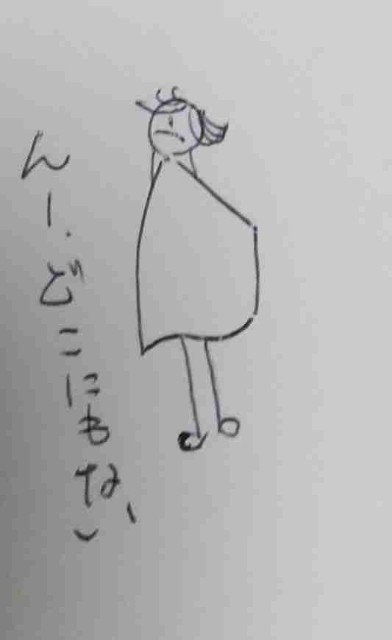 んー.どこにもない